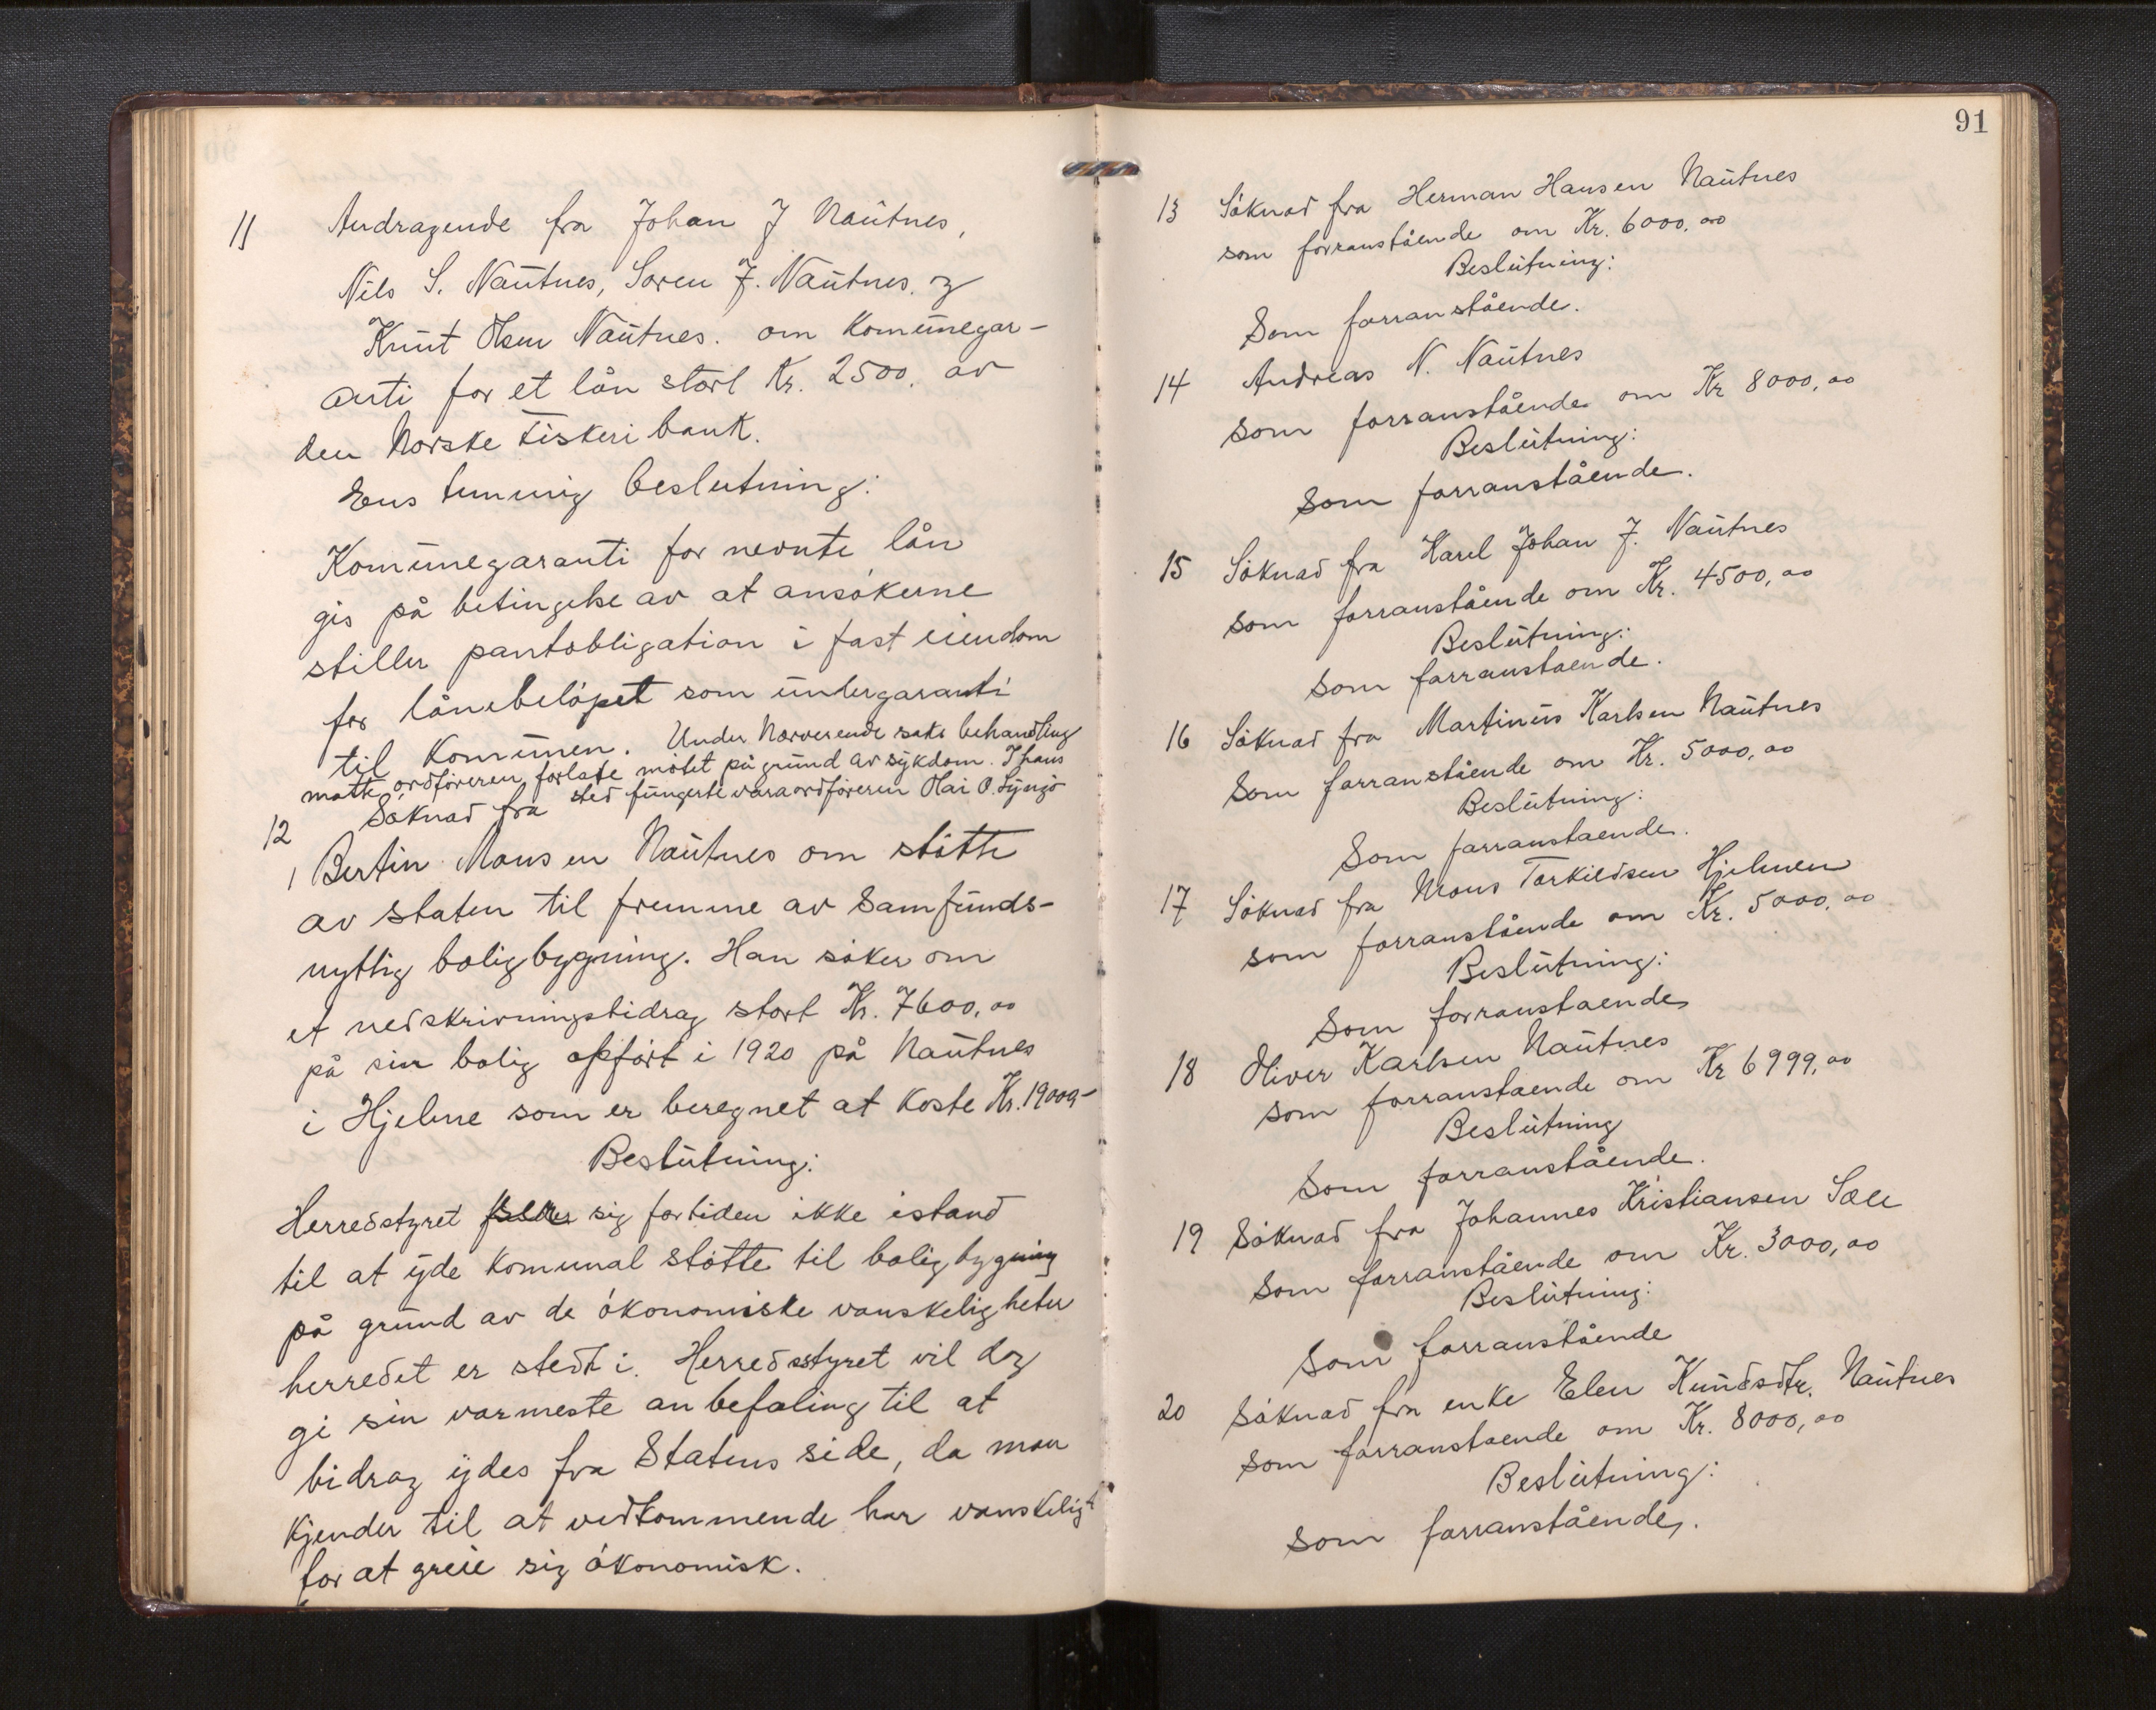 11 Andragende fra Johan J Nautnes,
Nils S. Nautnes, Soren J. Nautnes. og
Knut Olsen Nautnes. om Komunegar-
anti for et lån stort Kr. 2500. av
den Norske Fiskeribank.
Enstemmig beslutning:
Komunegaranti for nevnte lån
gis på betingelse av at ansøkerne
stiller pantobligation i fast eiendom
for lånebeløpet som undergaranti
til Komunen. Under Nærverende saks behandling
måtte ordføreren forlate møtet på grund av sykdom. I hans
sted fungerte varaordføreren
12 Søknad fra
1 Bertin Monsen Nautnes om støtte
av staten til fremme av Samfunds-
nyttig boligbygning. Han søker om
et nedskrivningsbidrag stort Kr. 7600,00
på sin bolig opført i 1920 på Nautnes
i Hjelme som er beregnet at Koste Kr. 19000-
Beslutning:
Herredstyret ser sig fortiden ikke istand
til at yde Komunal støtte til boligbygning
på grund av de økonomiske vanskeligheter
herredet er stedt i. Herredsstyret vil dog
gi sin varmeste anbefaling til at
bidrag ydes fra Statens side, da man
kjender til at vedkommende har vanskelig
for at greie sig økonomisk.
91
13 Søknad fra Herman Hansen Nautnes
som forranstående om Kr. 6000.00
Beslutning:
Som forranstående.
14 Andreas N. Nautnes
Som forranstående om Kr 8000,00
Beslutning:
Som forranstående.
15 Søknad fra Karel Johan J. Nautnes
som forranstående om Kr. 4500,00
Beslutning:
Som forranstaende.
16 Søknad fra Martinus Karlsen Nautnes
Som forranstående om Kr. 5000,00
Beslutning:
Som forranstaende.
17 Søknad fra Mons Torkildsen Hjelmen
som forranstående om Kr. 5000.00
Beslutning:
Som forranstaende
18 Oliver Karlsen Nautnes
som forranstaende om Kr 6999,00
Beslutning
Som forranstående.
19 Søknad fra Johannes Kristiansen Sæle
Som forranstående om Kr. 3000,00
Beslutning:
Som forranstående
20 Søknad fra enke Elen Knudsdtr. Nautnes
Som forranstaende om Kr. 8000,00
Beslutning:
Som forranstående.